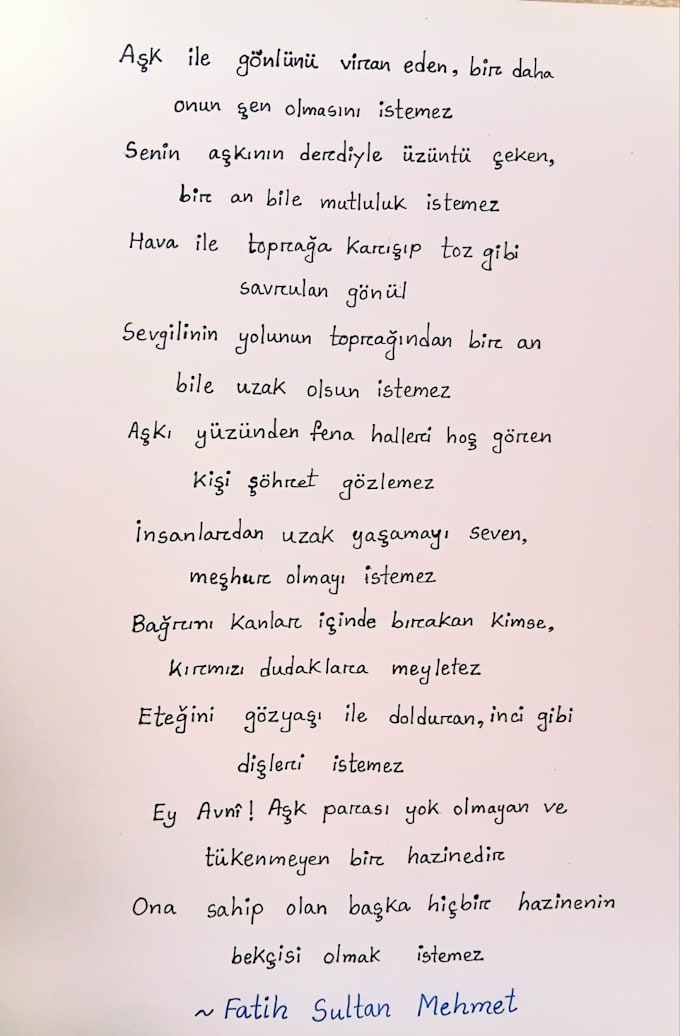 Aşk ile gönlünü viran eden, bir daha
onun şen olmasını istemez
Senin aşkının derdiyle üzüntü çeken,
bir an bile mutluluk istemez
Hava ile toprağa karışıp toz gibi
savrulan gönül
Sevgilinin yolunun toprağından bir an
bile uzak olsun istemez
Aşkı yüzünden fena halleri hoş gören
kişi şöhret gözlemez
İnsanlardan uzak yaşamayı seven,
meşhur olmayı istemez
Bağrını kanlar içinde bırakan kimse,
kırmızı dudaklara meyletez
Eteğini gözyaşı ile dolduran, inci gibi
dişleri istemez
Ey Avnî! Aşk parası yok olmayan ve
tükenmeyen bir hazinedir
Ona sahip olan başka hiçbir hazinenin
bekçisi olmak istemez
~ Fatih Sultan Mehmet